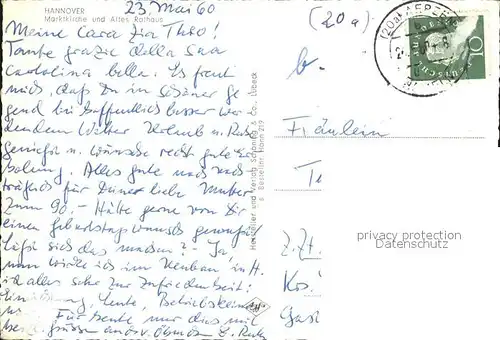 HANNOVER
Marktkirche und Altes Rathaus
23. Mai 60
(20a)
Meine Cara Zia Theo!
Tante grazie della Sua
cartolina bella. Es freut
mich, daß Du in schöner Ge
gend bei hoffentlich besser wer
dendem Wetter Urlaub u. Ruhe
genießt u. wünsche recht gute Er
holung. Alles gute noch nach
träglich für Deine liebe Mutter
zum 90.- Hätte gerne von Dir
einen Geburtstagswunsch gewußt
läßt sich das machen? Ja,
nun wirke ich im Neubau in H.
ist alles sehr zur Zufriedenheit:
heute, Betriebsklima
Für heute nur dies mit
b.
Fräulein
z.Zt.
Hersteller und Verlag Schöning & Co., Lübeck
Bestellnr. Hann 219
10
privacy protection
Datenschutz